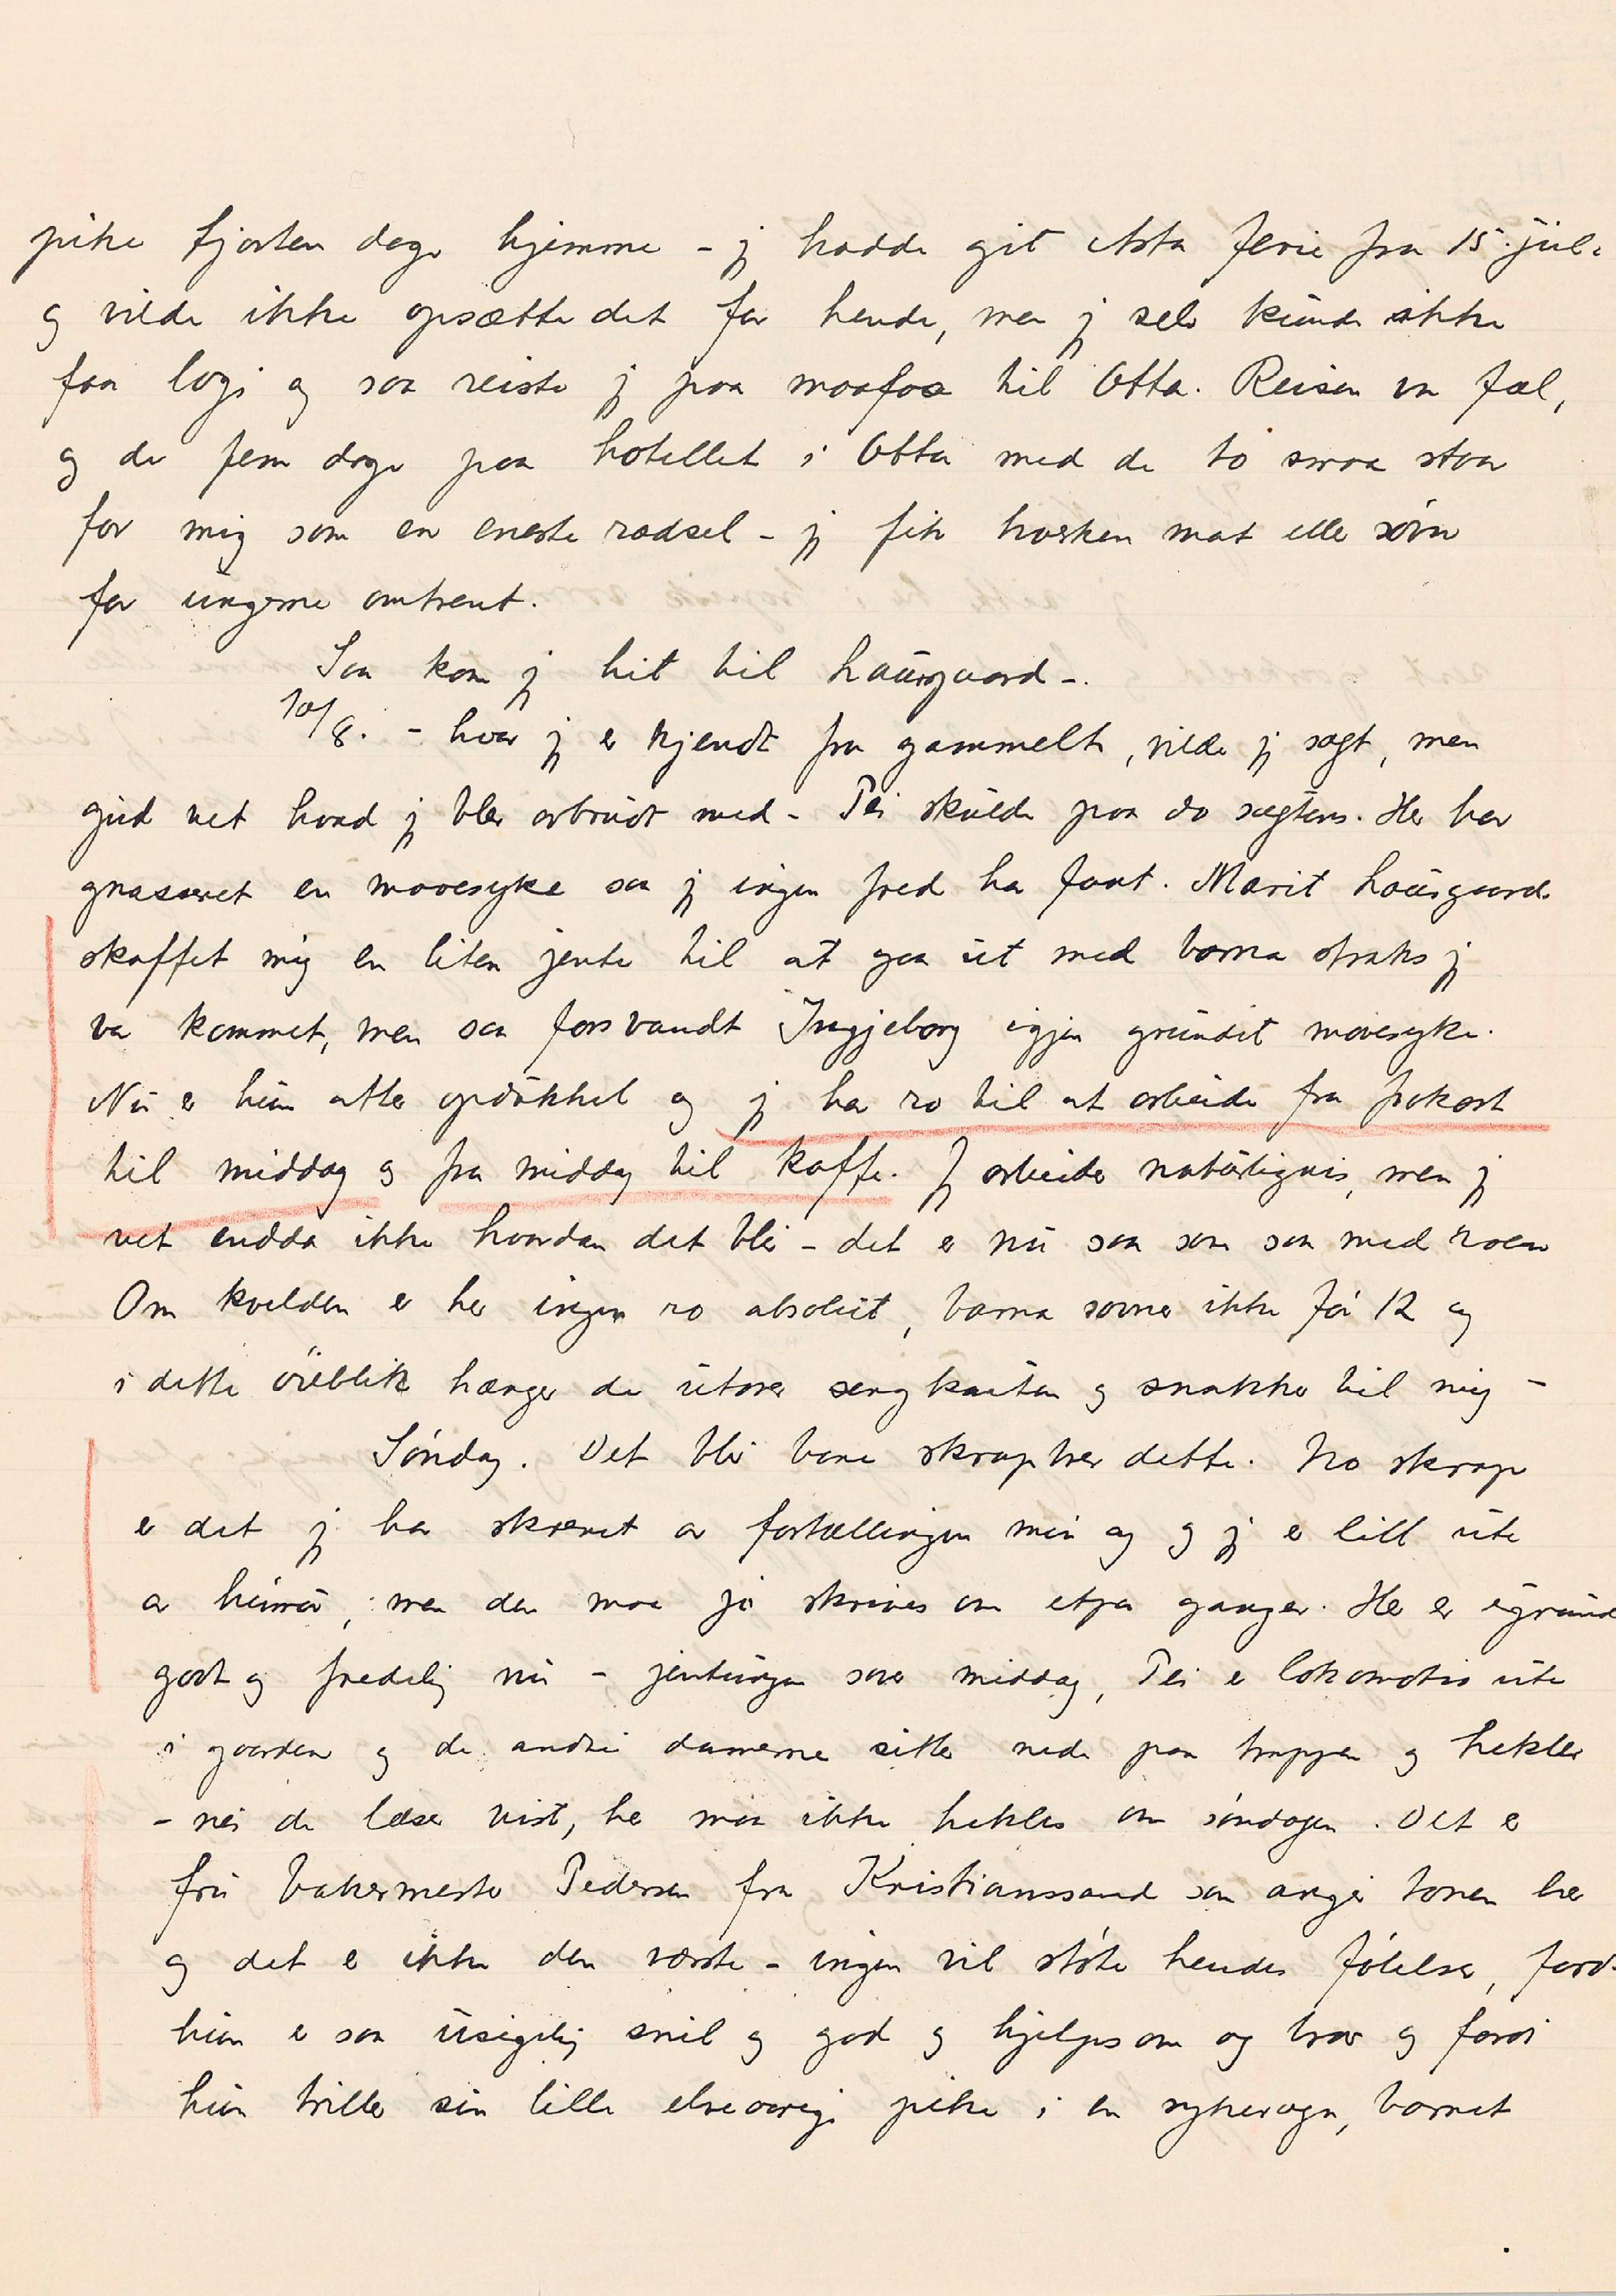 pike fjorten dage hjemme – jeg hadde git Asta ferie fra 15 juli
og vilde ikke opsætte det for hende, men jeg selv kunde ikke
faa logi og saa reiste jeg paa maafaa til Otta. Reisen var fæl,
og de fem dage paa hotellet i Otta med de to smaa staar
for mig som en eneste rædsel – jeg fik hverken mat eller søvn
for ungerne omtrent.
Saa kom jeg hit til Laurgaard –.
10/8. – hvor jeg er kjendt fra gammelt, vilde jeg sagt, men
gud vet hvad jeg blev avbrudt med – Tei skulde paa do sagtens. Her har
grassert en mavesyke saa jeg ingen fred har faat. Marit Laurgaard
skaffet mig en liten jente til at gaa ut med barna straks jeg
var kommet, men saa forsvandt Ingjeborg igjen grundet mavesyke.
Nu er hun atter opdukket og jeg har ro til at arbeide fra frokost
til middag og fra middag til kaffe. Jeg arbeider naturligvis, men jeg
vet endda ikke hvordan det blir – det er nu saa som saa med roen
Om kvelden er her ingen ro absolut, barna sovner ikke før 12 og
i dette øieblik hænger de utover sengkanten og snakker til mig –
Søndag. Det blir bare skraphrev dette. No skrap
er det jeg har skrevet av fortællingen min og og jeg er litt ute
av humør, men den maa jo skrives om etpar ganger. Her er igrund
godt og fredelig nu – jentungen sover middag, Tei er lokomotiv ute
i gaarden og de andre damerne sitter nede paa trappen og hekler
– nei de læser vist, her maa ikke hekles om søndagen. Det er
fru bakermester Pedersen fra Kristianssand som angir tonen her
og det er ikke den værste – ingen vil støte hendes følelser, fordi
hun er saa usigelig snil og god og hjelpsom og brav og fordi
hun triller sin lille elveaarige pike i en sykevogn, barnet